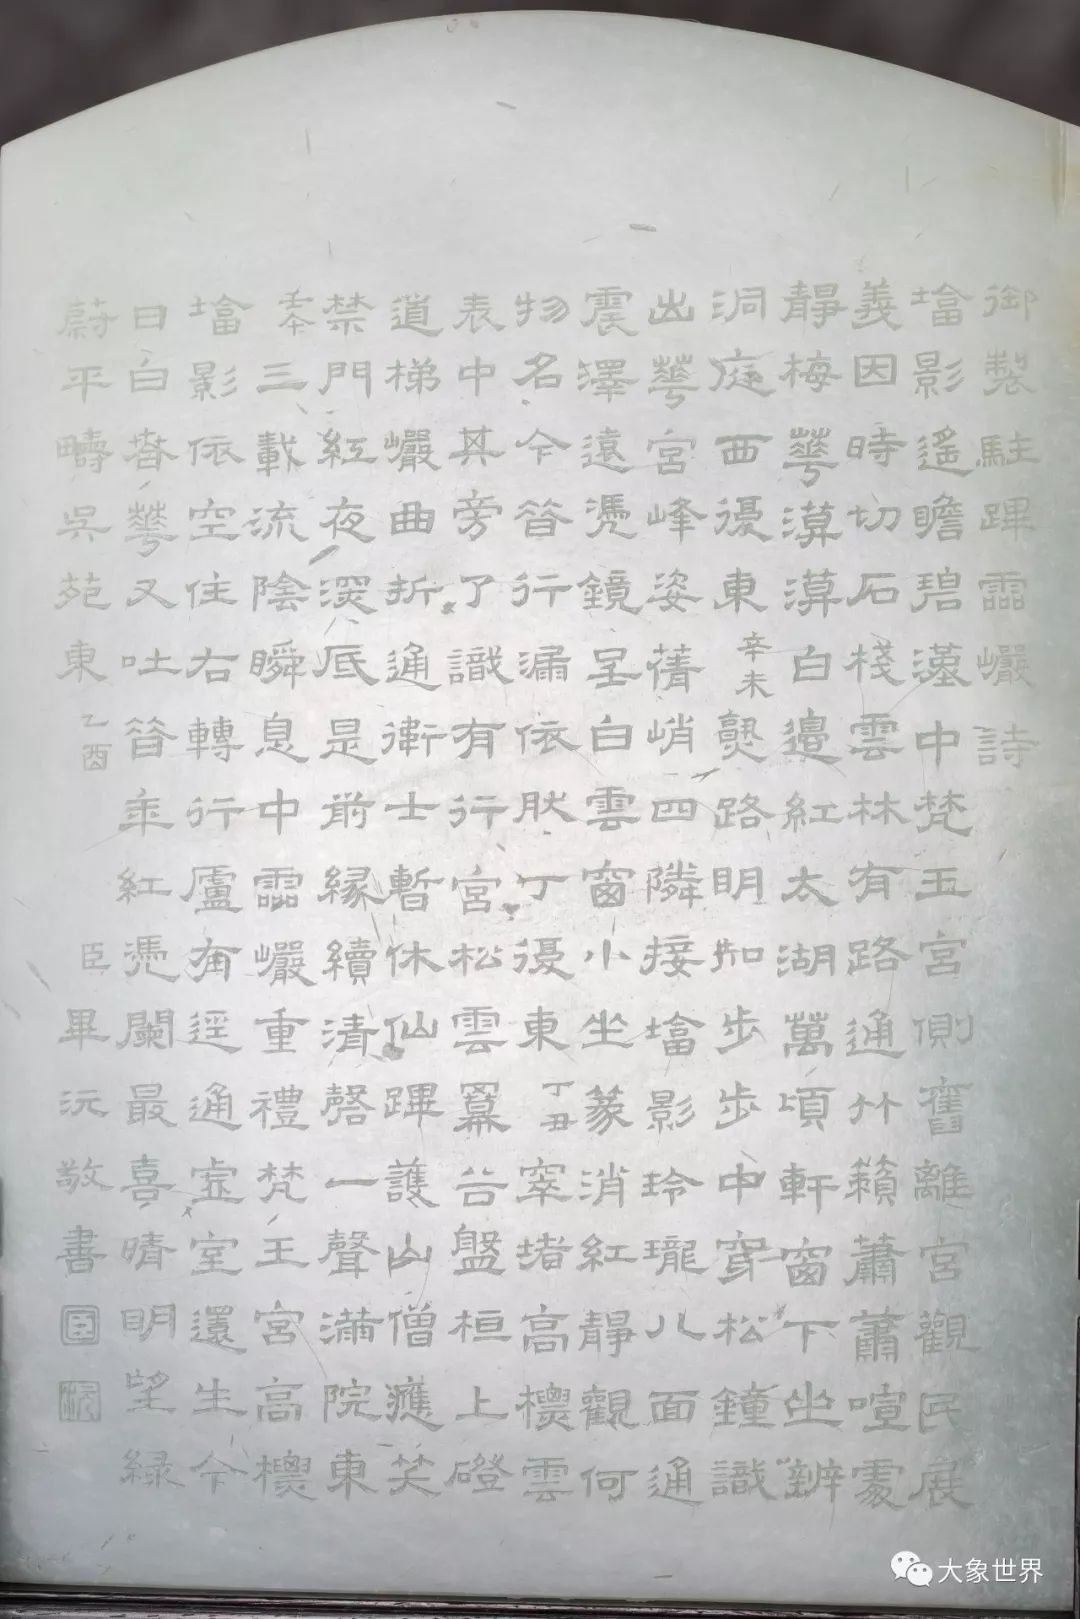 御製駐蹕霝巗詩
塔影遙瞻碧漢中梵王宮側舊離宮觀民展
義因時切石棧雲林有路通竹籟蕭蕭喧處
靜梅華漠漠白邊紅太湖萬頃軒窗下坐辨
洞庭西復東辛未熟路明知步步中穿松鐘識
出華宮峰姿蒨峭四隣接塔影玲瓏八面通
震澤遠憑鏡呈白雲窗小坐篆消紅靜觀何
物名今昔行漏依肰丁復東丁丑窣堵高標雲
表中其旁了識有行宮松雲冪谷盤桓上磴
道梯巗曲折通衛士暫休仙蹕護山僧應笑
禁門紅夜深底是前緣續清磬一聲滿院東
壬午三載流陰瞬息中霝巗重禮梵王宮高標
塔影依空住右轉行廬有徑通虛室還生今
日白春華又吐昔年紅憑闌最喜晴明望綠
蔚平疇吳苑東乙酉 臣畢沅敬書
大象世界